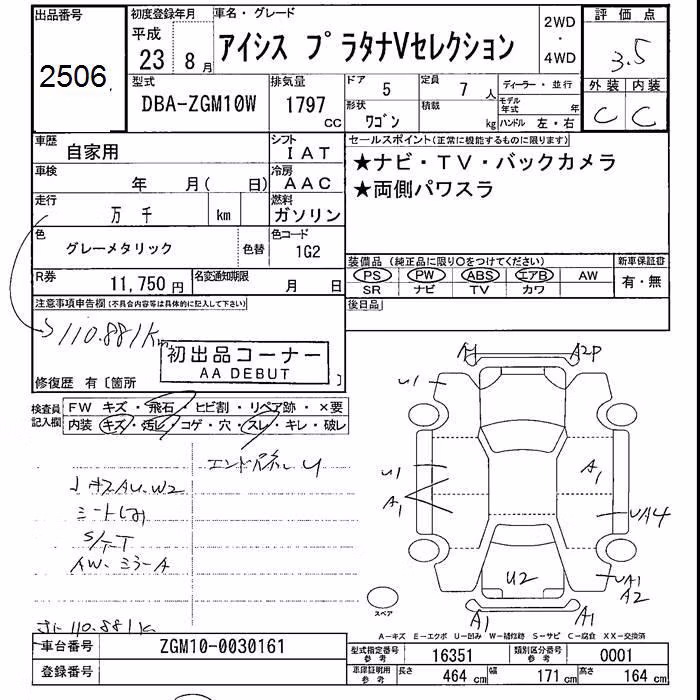 出品番号
2506
初度登録年月
平成
23 8月
車名・グレード
アイシス プラタナVセレクション
2WD
・
4WD
評価点
3.5
外装 内装
C C
型式
DBA-ZGM10W
排気量
1797 cc
ドア 5
定員 7 人
形状 ワゴン
積載 kg
ディーラー・並行
モデル年式 年
ハンドル 左・右
車歴 自家用
シフト IAT
車検 年 月( 日)
冷房 AAC
走行 万 千 km
燃料 ガソリン
色 グレーメタリック 色替
色コード 1G2
R券 11,750 円
名変通知期限 月 日
セールスポイント(正常に機能するものに限ります)
★ナビ・TV・バックカメラ
★両側パワスラ
装備品 (純正品に限り○をつけてください)
PS PW ABS エアB AW
SR ナビ TV カワ
新車保証書
有・無
後日品
注意事項申告欄(不具合内容等は具体的に記入して下さい)
110.881K
初出品コーナー
AA DEBUT
修復歴 有〔箇所 〕
検査員記入欄
FW キズ・飛石・ヒビ割・リペア跡・×要
内装 キズ・汚レ・コゲ・穴・スレ・キレ・破レ
U
AU.W2
AW.ミラーA
110.881K
A1 A2P
U1
U1
A1
A1
UA4
U2
UA1
A2
A1 A1
スペア
A-キズ E-エクボ U-凹み W-補修跡 S-サビ C-腐食 XX-交換済
車台番号 ZGM10-0030161
登録番号
型式指定番号 参考 16351
類別区分番号 参考 0001
車庫証明用 参考
長さ 464 cm
幅 171 cm
高さ 164 cm